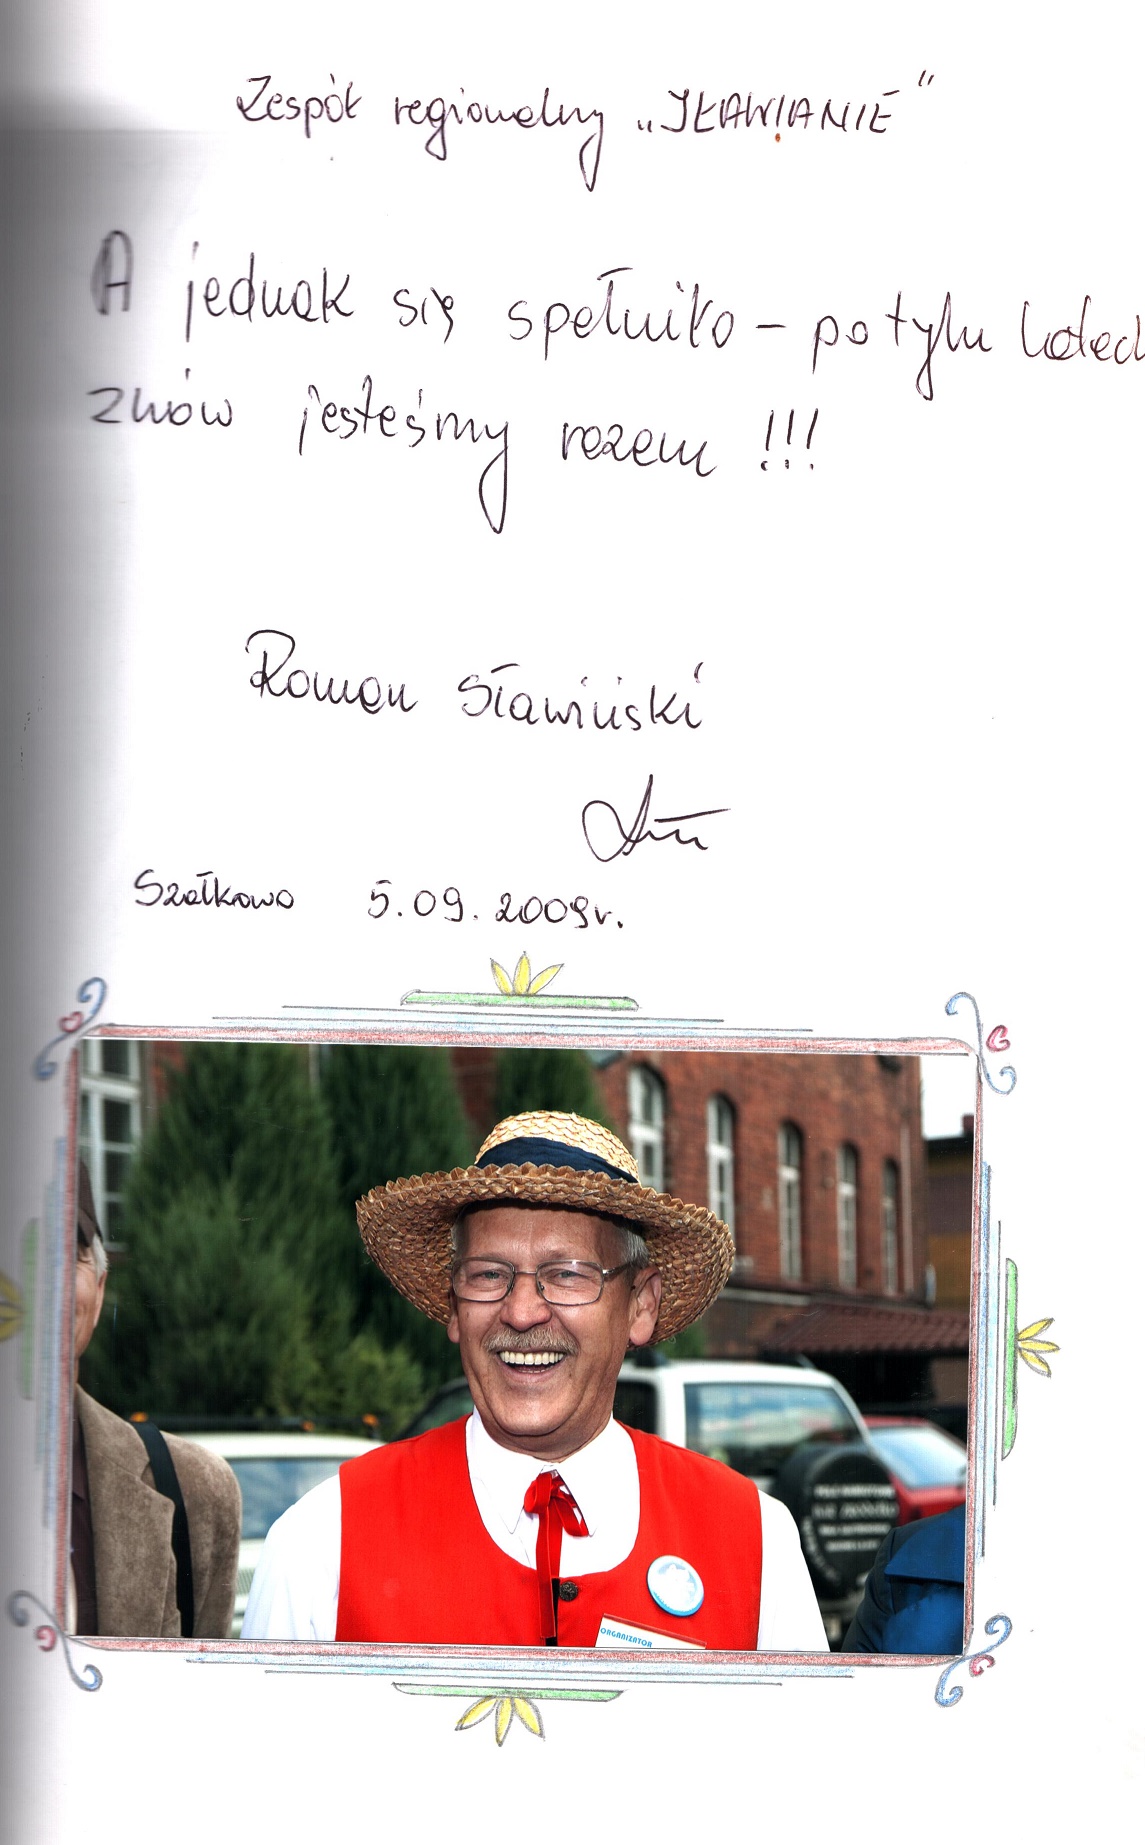 Zespół regionalny „IŁAWIANIE”
A jednak się spełniło – po tylu latach
znów jesteśmy razem !!!
Roman Sławiński
Szałkowo 5.09.2009r.
ORGANIZATOR